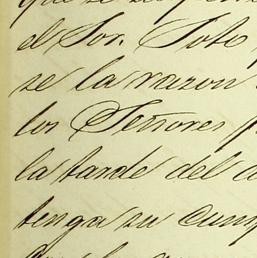 que se
el Sor. Soto
se la razon
los Señores
la tarde del
tenga su cump